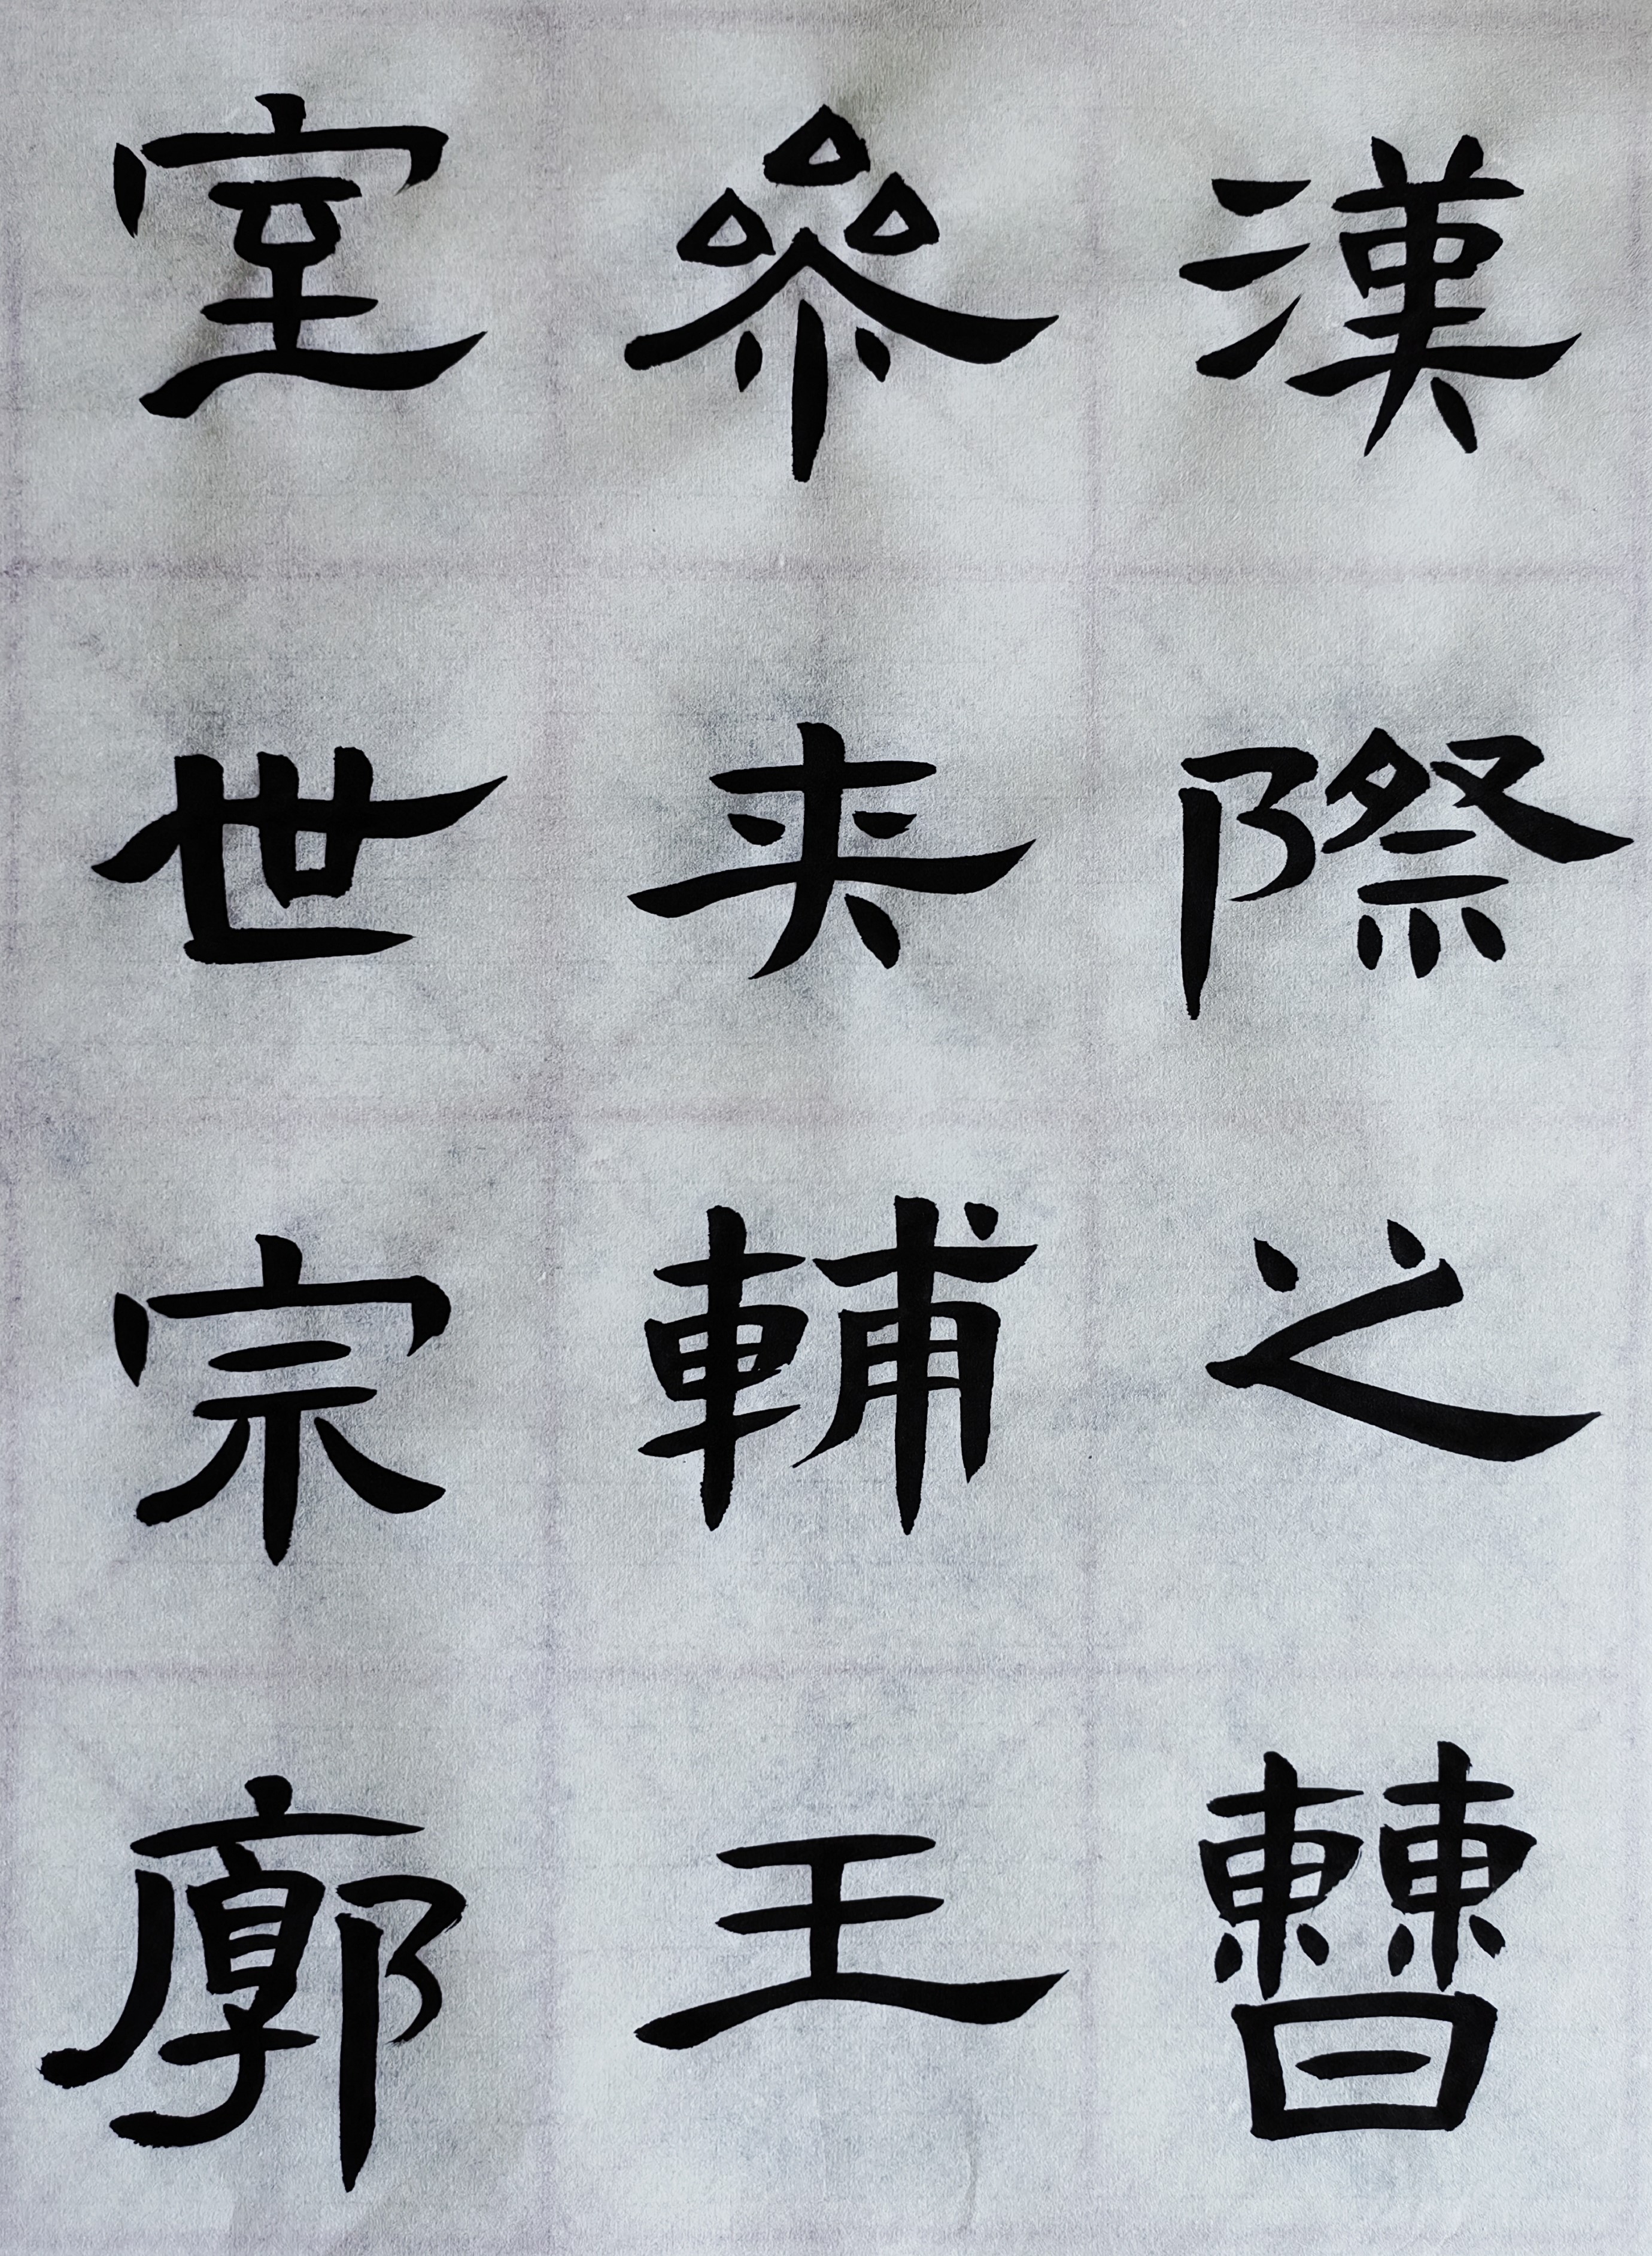 漢際之曹
參夾輔王
室世宗廓